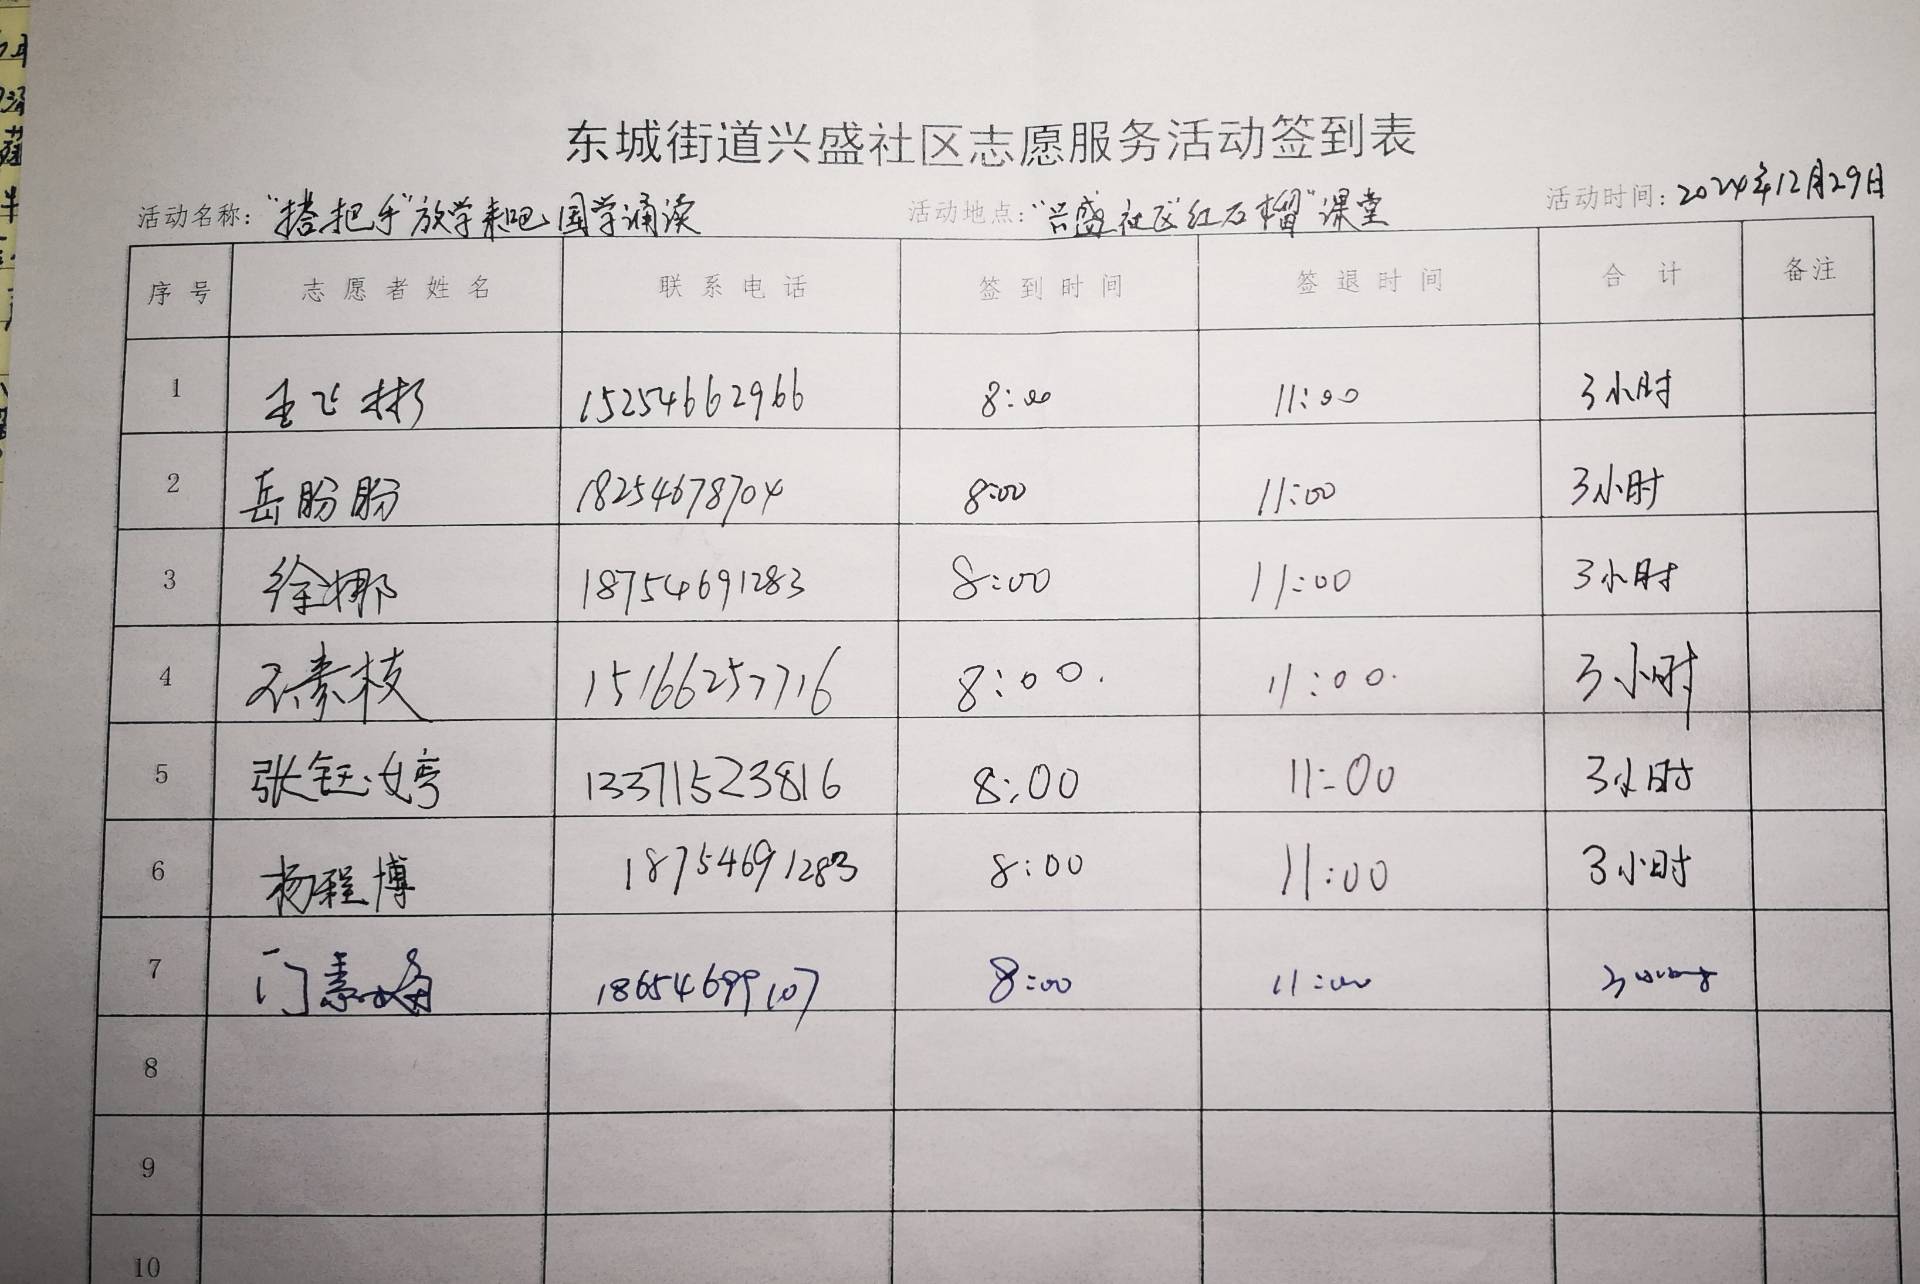 东城街道兴盛社区志愿服务活动签到表
活动名称："搭把手"放学来吧 国学诵读 活动地点："兴盛社区"红石榴"课堂 活动时间：2024年12月29日
序号 志愿者姓名 联系电话 签到时间 签退时间 合计 备注
1 王飞彬 15254662966 8:00 11:00 3小时
2 岳盼盼 18254678704 8:00 11:00 3小时
3 徐娜 18754691283 8:00 11:00 3小时
4 石素枝 15166257716 8:00. 11:00. 3小时
5 张钰婷 13371523816 8:00 11:00 3小时
6 杨程博 18754691283 8:00 11:00 3小时
7 门 18654699107 8:00 11:00 3
8
9
10